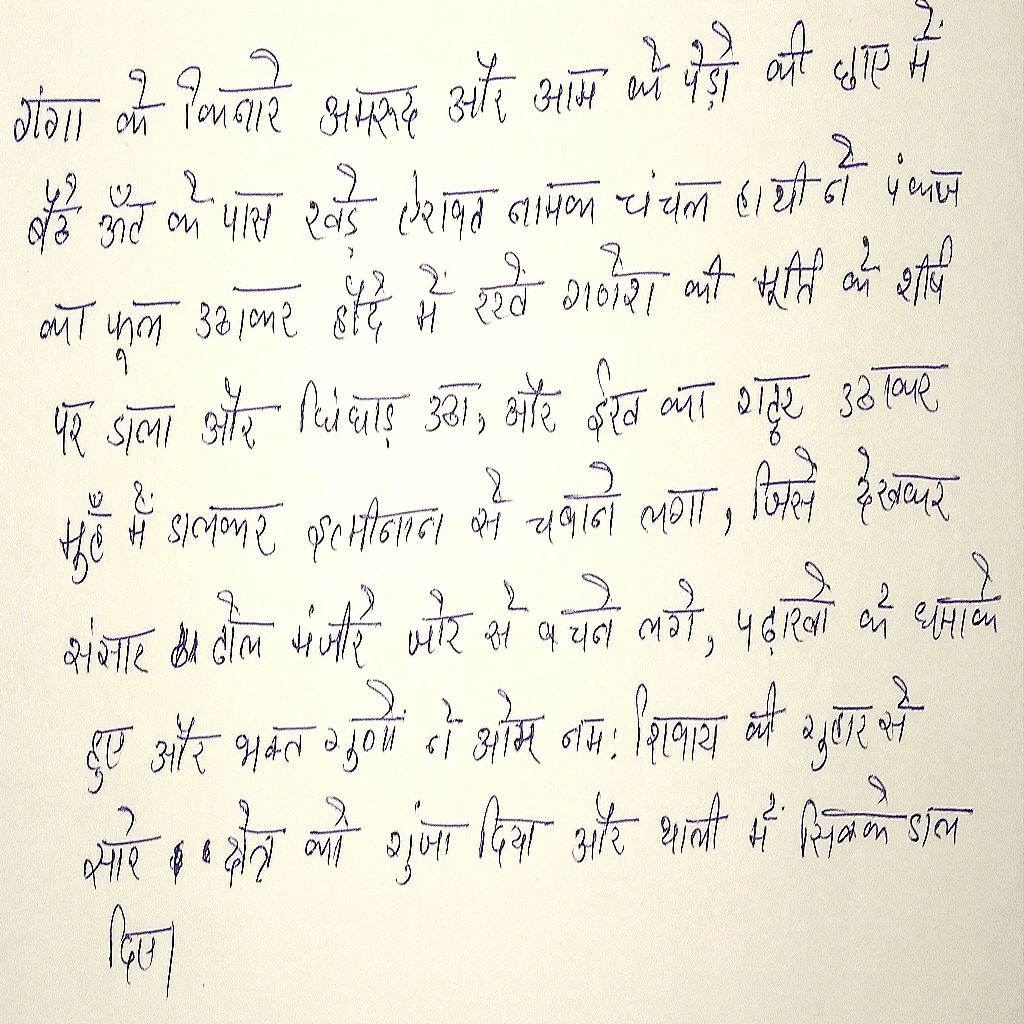 गंगा के किनारे अमरूद और आम के पेड़ो की छाए में
बैठे ऊँट के पास खड़े ऐरावत नामक चंचल हाथी ने पंकज
का फूल उठाकर हौदे में रखे गणेश की मूर्ति के शीर्ष
पर डाला और चिंघाड़ उठा, और ईख का गट्ठर उठाकर
मुहँ में डालकर इत्मीनान से चबाने लगा, जिसे देखकर
संसार ढोल मंजीरे जोर से बचने लगे, पढ़ाखो के धमाके
हुए और भक्त गुणों ने ओम् नम: शिवाय की गुहार से
सारे क्षेत्र को गुंजा दिया और थाली में सिक्के डाल
दिए।